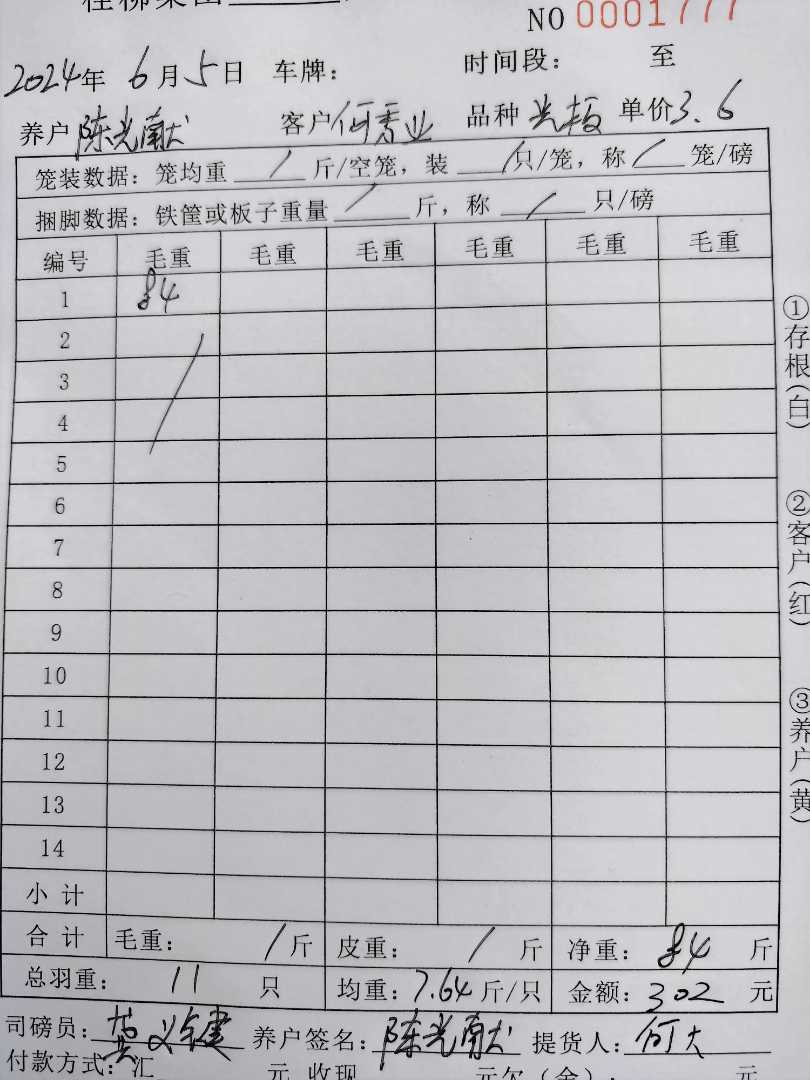 桂柳集团
NO 0001777
2024年 6月5日 车牌: 时间段: 至
养户 陈光献 客户 何秀业 品种 光板 单价 3.6
笼装数据: 笼均重 / 斤/空笼, 装 / 只/笼, 称 / 笼/磅
捆脚数据: 铁筐或板子重量 / 斤, 称 / 只/磅
编号 毛重 毛重 毛重 毛重 毛重 毛重
1 84
2
3
4
5
6
7
8
9
10
11
12
13
14
小计
合计 毛重: / 斤 皮重: / 斤 净重: 84 斤
总羽重: 11 只 均重: 7.64 斤/只 金额: 302 元
司磅员: 养户签名: 陈光献 提货人: 何大
付款方式: 汇 元 收现 元欠(金): 元
①存根(白)
②客户(红)
③养户(黄)